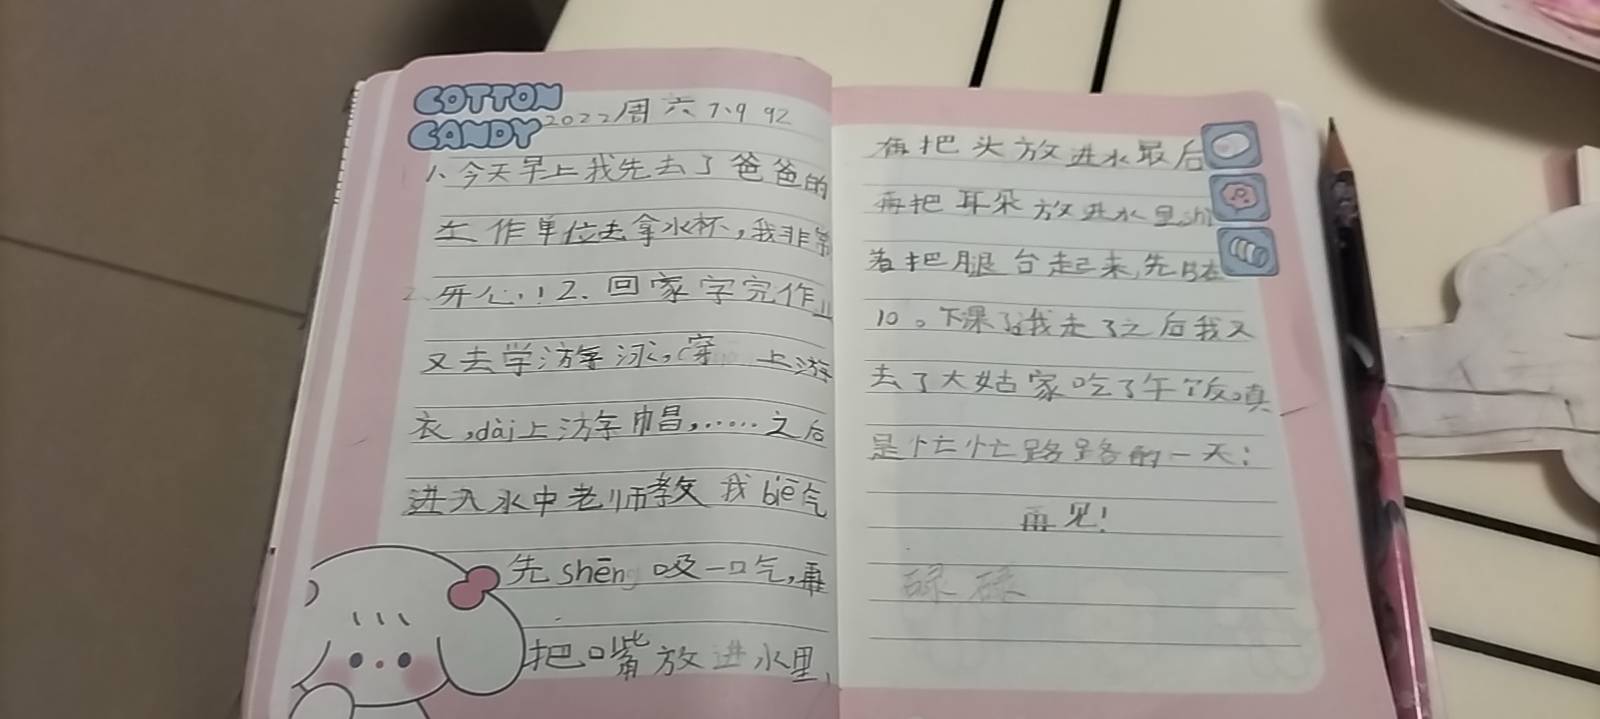 COTTON
CANDY
2022周六 7、9 92
1、今天早上我先去了爸爸的
工作单位去拿水杯,我非常
开心,! 2、回家字完作业
又去学游泳,穿上游
衣,dài上游帽,……之后
进入水中老师教我biē气
先shēn吸一口气,再
把嘴放进水里,
再把头放进水最后
再把耳朵放进水里
着把腿台起来,先
10。下课了我走了之后我又
去了大姑家吃了午饭。真
是忙忙路路的一天:
再见!
碌碌